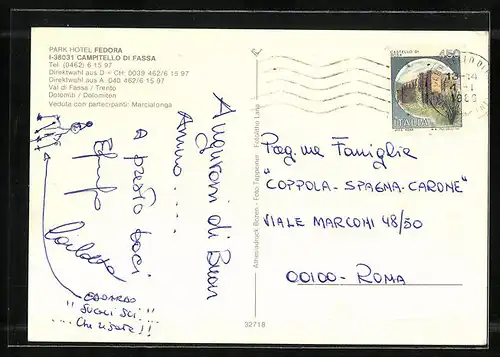 PARK HOTEL FEDORA
I-38031 CAMPITELLO DI FASSA
Tel. (0462) 6 15 97
Direktwahl aus D + CH: 0039 462/6 15 97
Direktwahl aus A: 040 462/6 15 97
Val di Fassa / Trento
Dolomiti / Dolomiten
Veduta con partecipanti: Marcialonga
Auguroni di Buon
Anno....
A presto baci
EDOARDO
"SUGLI SCI"...
...Che risate!!
Athesiadruck Bozen - Foto Tappeiner - Fotolitho Lana
32718
CASTELLO DI
450
ITALIA
Pregma Famiglia
"COPPOLA - SPAGNA - CARONE"
VIALE MARCONI 48/50
00100 - ROMA